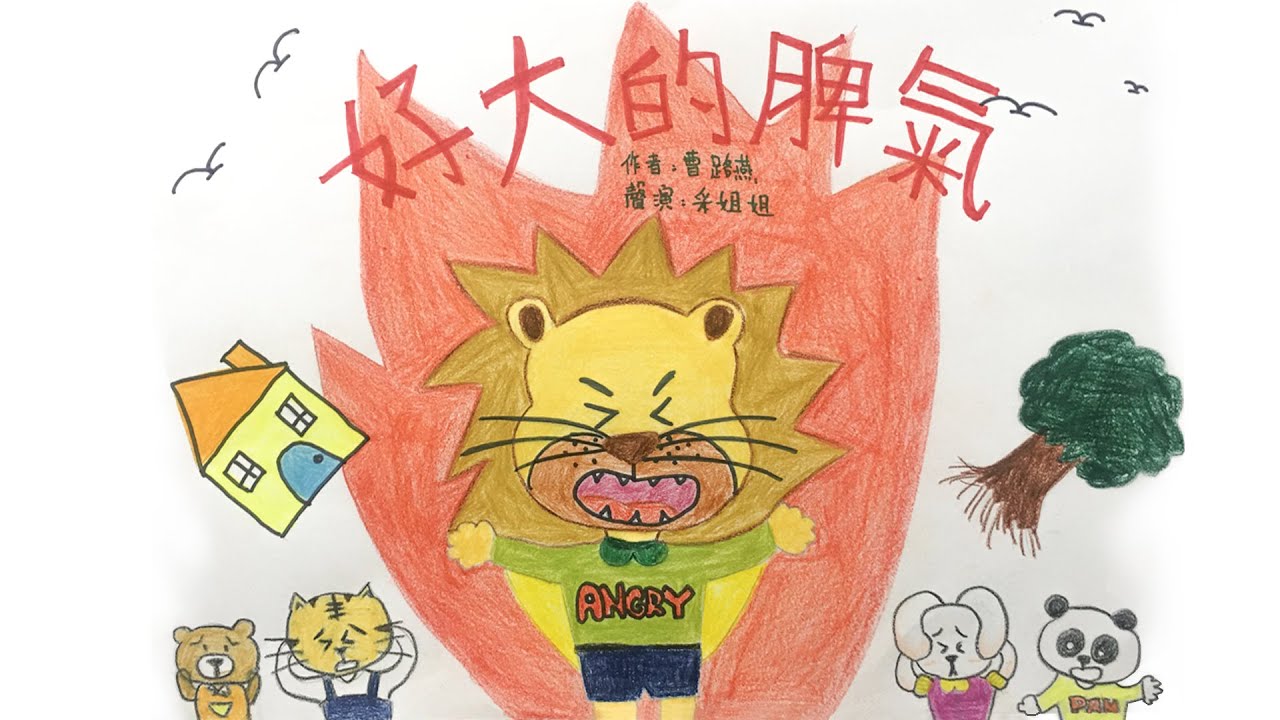 好大的脾氣
作者：曹路燕
聲演：采姐姐
ANGRY
PAN